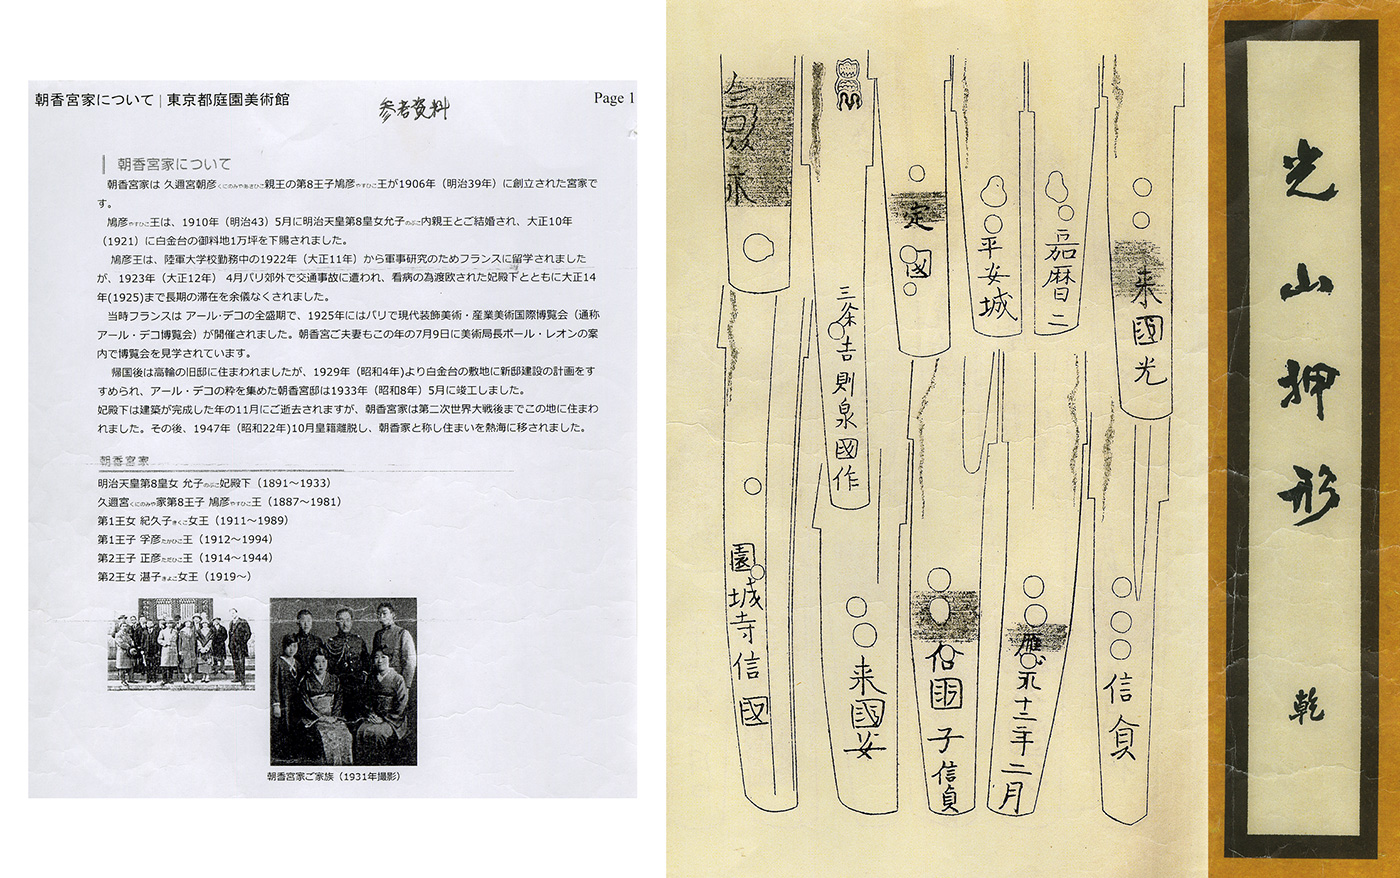 朝香宮家について | 東京都庭園美術館
参考資料
Page 1
朝香宮家について
朝香宮家は 久邇宮朝彦くにのみやあさひこ親王の第8王子鳩彦やすひこ王が1906年（明治39年）に創立された宮家で
す。
鳩彦やすひこ王は、1910年（明治43）5月に明治天皇第8皇女允子のぶこ内親王とご結婚され、大正10年
（1921）に白金台の御料地1万坪を下賜されました。
鳩彦王は、陸軍大学校勤務中の1922年（大正11年）から軍事研究のためフランスに留学されました
が、1923年（大正12年） 4月パリ郊外で交通事故に遭われ、看病の為渡欧された妃殿下とともに大正14
年(1925)まで長期の滞在を余儀なくされました。
当時フランスは アール・デコの全盛期で、1925年にはパリで現代装飾美術・産業美術国際博覧会（通称
アール・デコ博覧会）が開催されました。朝香宮ご夫妻もこの年の7月9日に美術局長ポール・レオンの案
内で博覧会を見学されています。
帰国後は高輪の旧邸に住まわれましたが、1929年（昭和4年)より白金台の敷地に新邸建設の計画をす
すめられ、アール・デコの粋を集めた朝香宮邸は1933年（昭和8年）5月に竣工しました。
妃殿下は建築が完成した年の11月にご逝去されますが、朝香宮家は第二次世界大戦後までこの地に住まわ
れました。その後、1947年（昭和22年)10月皇籍離脱し、朝香家と称し住まいを熱海に移されました。
朝香宮家
明治天皇第8皇女 允子のぶこ妃殿下（1891～1933）
久邇宮くにのみや家第8王子 鳩彦やすひこ王（1887～1981）
第1王女 紀久子きくこ女王（1911～1989）
第1王子 孚彦たかひこ王（1912～1994）
第2王子 正彦ただひこ王（1914～1944）
第2王女 湛子きよこ女王（1919～）
朝香宮家ご家族（1931年撮影）
光山押形
乾
来國光
嘉暦二
平安城
定國
三条吉則泉國作
永
信貞
應永十二年二月
國子信貞
来國安
園城寺信國